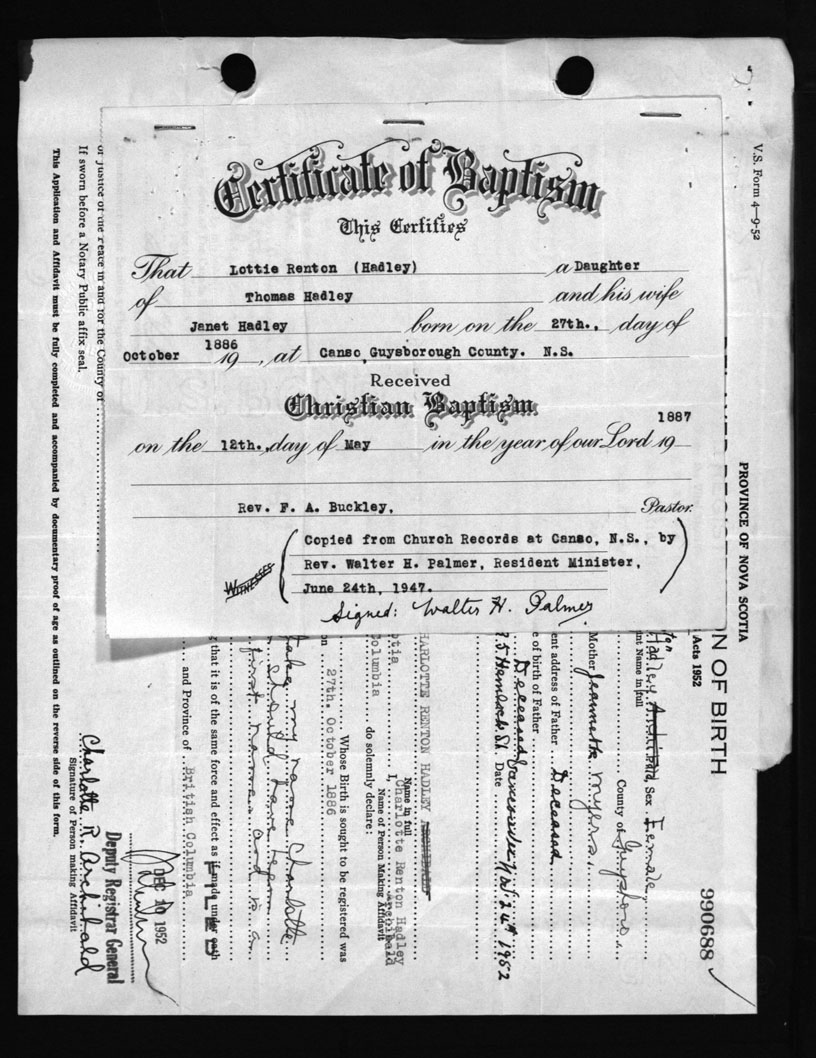 Certificate of Baptism
This Certifies
That Lottie Renton (Hadley) a Daughter
of Thomas Hadley and his wife
Janet Hadley born on the 27th., day of
October 1886 19 , at Canso, Guysborough County. N.S.
Received
Christian Baptism
1887
on the 12th., day of May in the year of our Lord 19
Rev. F. A. Buckley, Pastor.
WITNESSES
(Copied from Church Records at Canso, N.S., by
Rev. Walter H. Palmer, Resident Minister,
June 24th, 1947.)
Signed: Walter H. Palmer
V.S. Form 4—9-52
PROVINCE OF NOVA SCOTIA
Acts 1952
N OF BIRTH
990688
Hadley Sex Female
nt Name in full
County of Guysboro
Mother Jeannette Myers
ent address of Father Deceased
e of birth of Father Deceased
Date 1952
HARLOTTE RENTON HADLEY ARCHIBALD
Name in full
otia I, Charlotte Renton Hadley Archibald
Name of Person Making Affidavit
Columbia do solemnly declare:
Whose Birth is sought to be registered was
on 27th. October 1886
take my name Charlotte
should have been
first names and
g that it is of the same force and effect as if made under oath
FILED
and Province of British Columbia
DEC 10 1952
Deputy Registrar General
Charlotte R. Archibald
Signature of Person making Affidavit
or Justice of the Peace in and for the County of
If sworn before a Notary Public affix seal.
This Application and Affidavit must be fully completed and accompanied by documentary proof of age as outlined on the reverse side of this form.